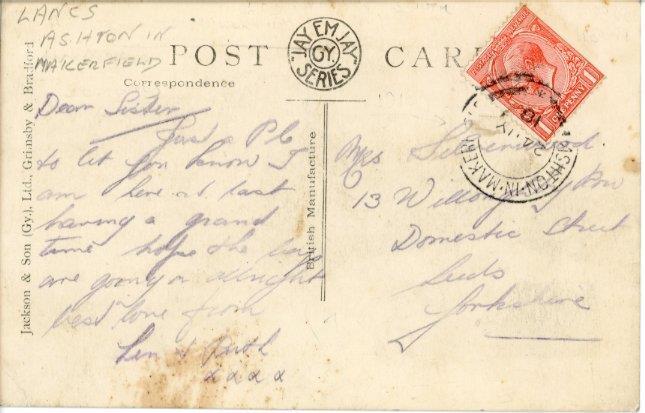 LANCS
ASHTON IN
MAKERFIELD
POST CARD
"JAY EM JAY"
GY.
SERIES
Correspondence
Jackson & Son (Gy.), Ltd., Grimsby & Bradford
British Manufacture
ONE PENNY
ASHTON-IN-MAKER
Dear Sister
Just a P.C.
to let you know I
am here at last
having a grand
time hope the
are going on allright
best love from
Len & Ruth
x x x x
Mrs
13 Willoughby Row
Domestic Street
Leeds
Yorkshire